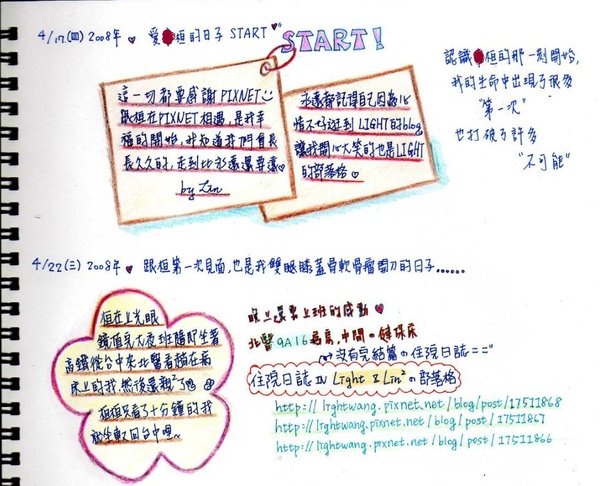 4/17(四) 2008年 ♥ 愛恒的日子 START
START!
這一切都要感謝 PIXNET
跟恒在 PIXNET 相遇,是我幸
福的開始,我知道我們會長
長久久的,走到比永遠還要遠
by Lin
永遠都記得自己因為心
情不好逛到 LIGHT的blog
讓我開心大笑的也是LIGHT
的部落格
認識恒的那一刻開始,
我的生命中出現了很多
"第一次"
也打破了許多
"不可能"
4/22(三) 2008年 ♥ 跟恒第一次見面,也是我雙眼膝蓋骨軟骨瘤開刀的日子......
恒在上完
鏡頂完大夜班隨即坐著
高鐵從台中來北醫看躺在病
床上的我,然後還親了
恒恒只看了十分鐘的我
就坐車回台中吧~
晚上還要上班的感動 ♥
北醫9A16病房,中間の健保床
沒有完結篇の住院日誌==""
住院日誌 IN Light & Lin² の部落格
http://lightwang.pixnet.net/blog/post/17511868
http://lightwang.pixnet.net/blog/post/17511867
http://lightwang.pixnet.net/blog/post/17511866